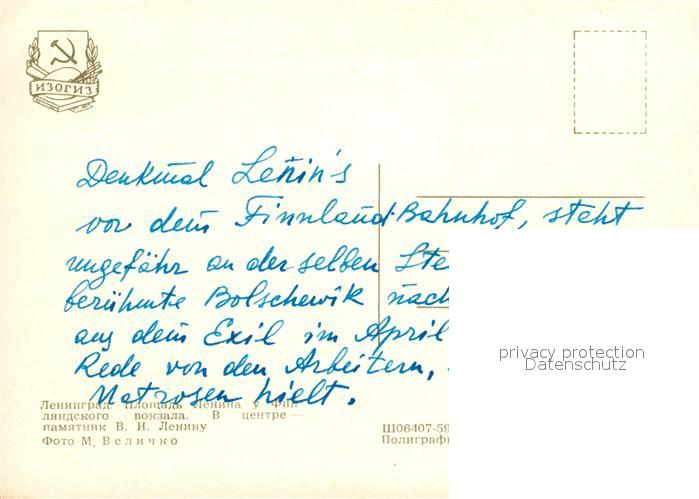 ИЗОГИЗ
Denkmal Lenin's
vor dem Finnland-Bahnhof, steht
ungefähr an der selben Ste
berühmte Bolschewik nach
aus dem Exil im April
Rede von den Arbeitern,
Matrosen hielt.
privacy protection
Datenschutz
Ленинград. Площадь Ленина у Фин-
ляндского вокзала. В центре —
памятник В. И. Ленину
Фото М. Величко
Ш06407-59
Полиграфи